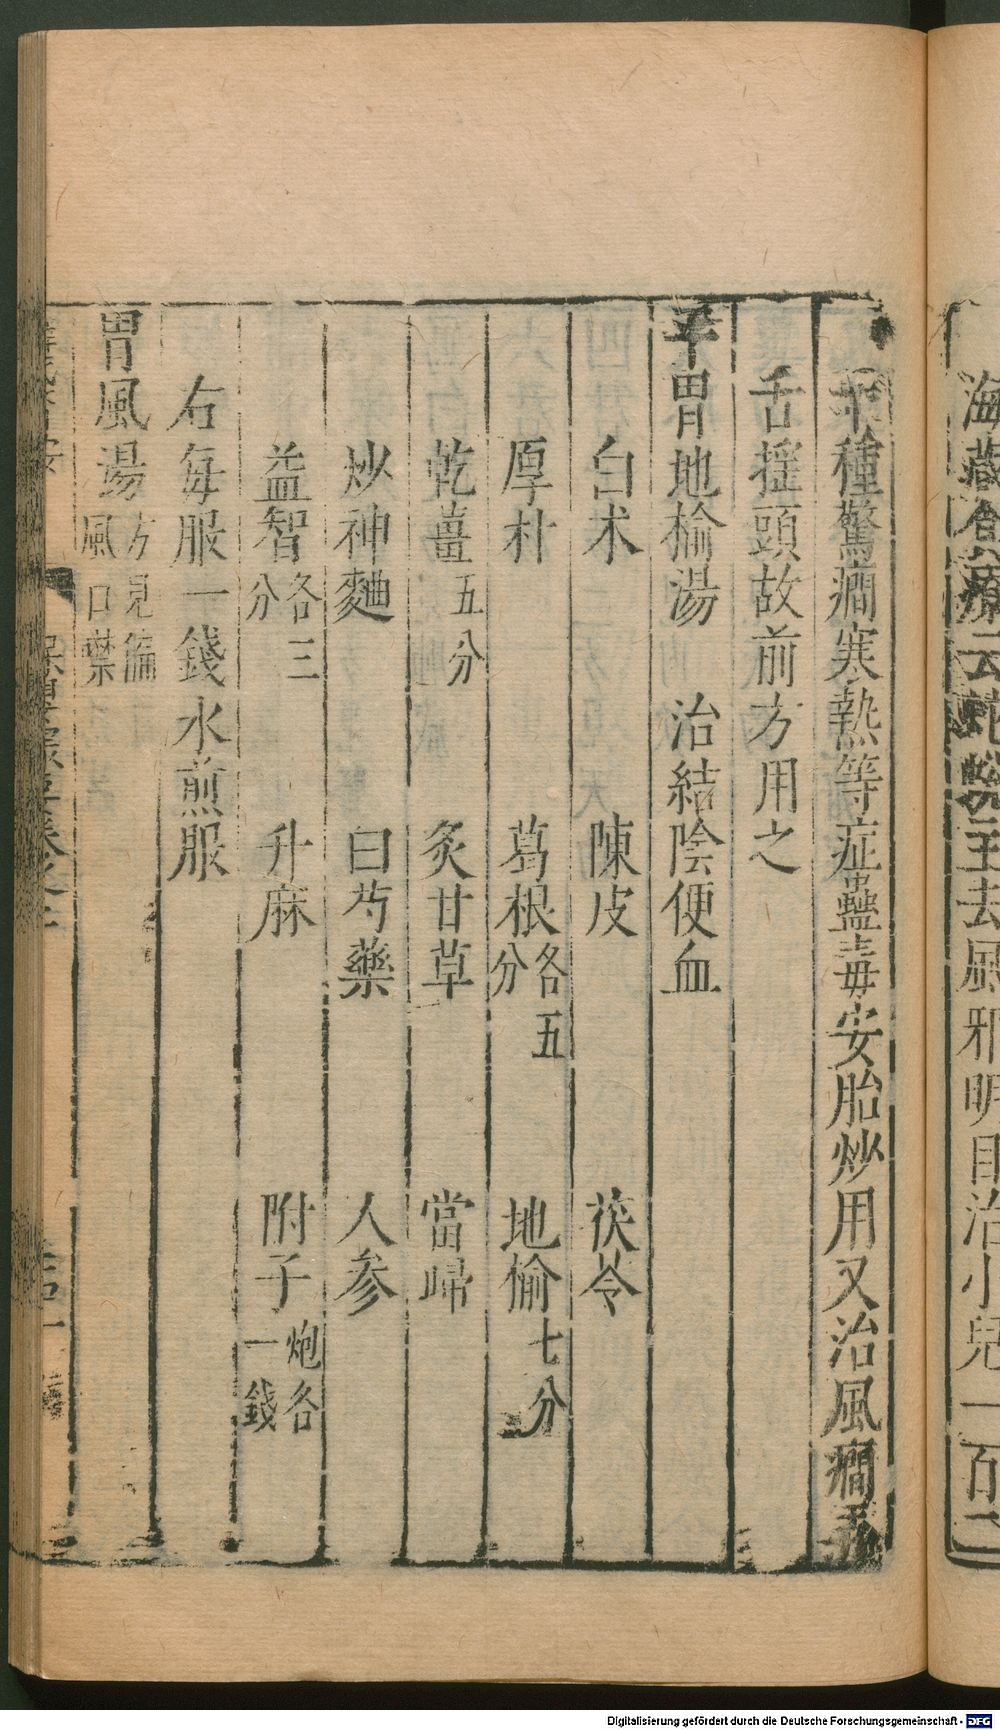 海藏
云
主去風邪明目治小兒一百二
十種驚癇寒熱等症蠱毒安胎炒用又治風癇
舌搖頭故前方用之
平胃地榆湯 治結陰便血
白朮 陳皮 茯苓
厚朴 葛根各五分 地愉七分
乾薑五分 炙甘草 當歸
炒神麯 白芍藥 人參
益智各三分 升麻 附子炮各一錢
右每服一錢水煎服
胃風湯方見論風口禁
Digitalisierung gefördert durch die Deutsche Forschungsgemeinschaft - DFG